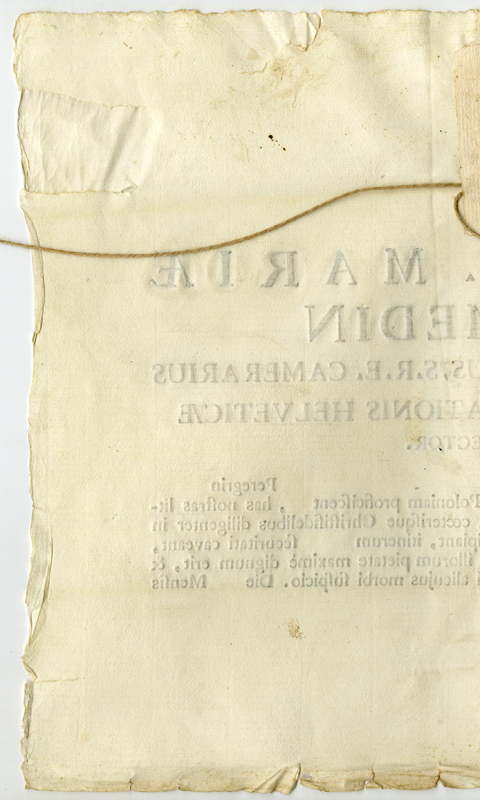 . MARIÆ
MEDIN
US, S.R.E. CAMERARIUS
ATIONIS HELVETICÆ
ECTOR.
Peregrin
Poloniam proficiſcent , has noſtras lit-
cœteriſque Chriſtifidelibus diligenter in
ipiant, itinerum ſecuritati caveant,
illorum pietate maximè dignum erit, &
alicujus morbi ſuſpicio. Die Menſis